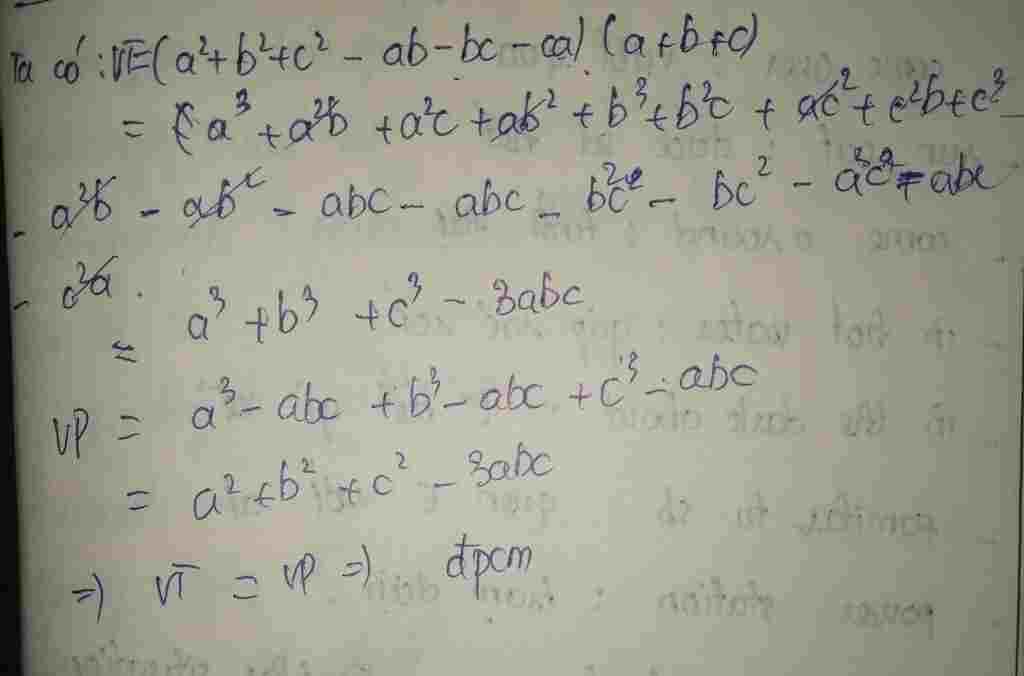 Ta có : VT = (a² + b² + c² - ab - bc - ca) (a + b + c)
= (a³ + a²b + a²c + ab² + b³ + b²c + ac² + c²b + c³
- a²b - ab² - abc - abc - b²c - bc² - a²c - abc
- c²a .
= a³ + b³ + c³ - 3abc
VP = a³ - abc + b³ - abc + c³ - abc
= a² + b² + c² - 3abc
=) VT = VP =) đpcm